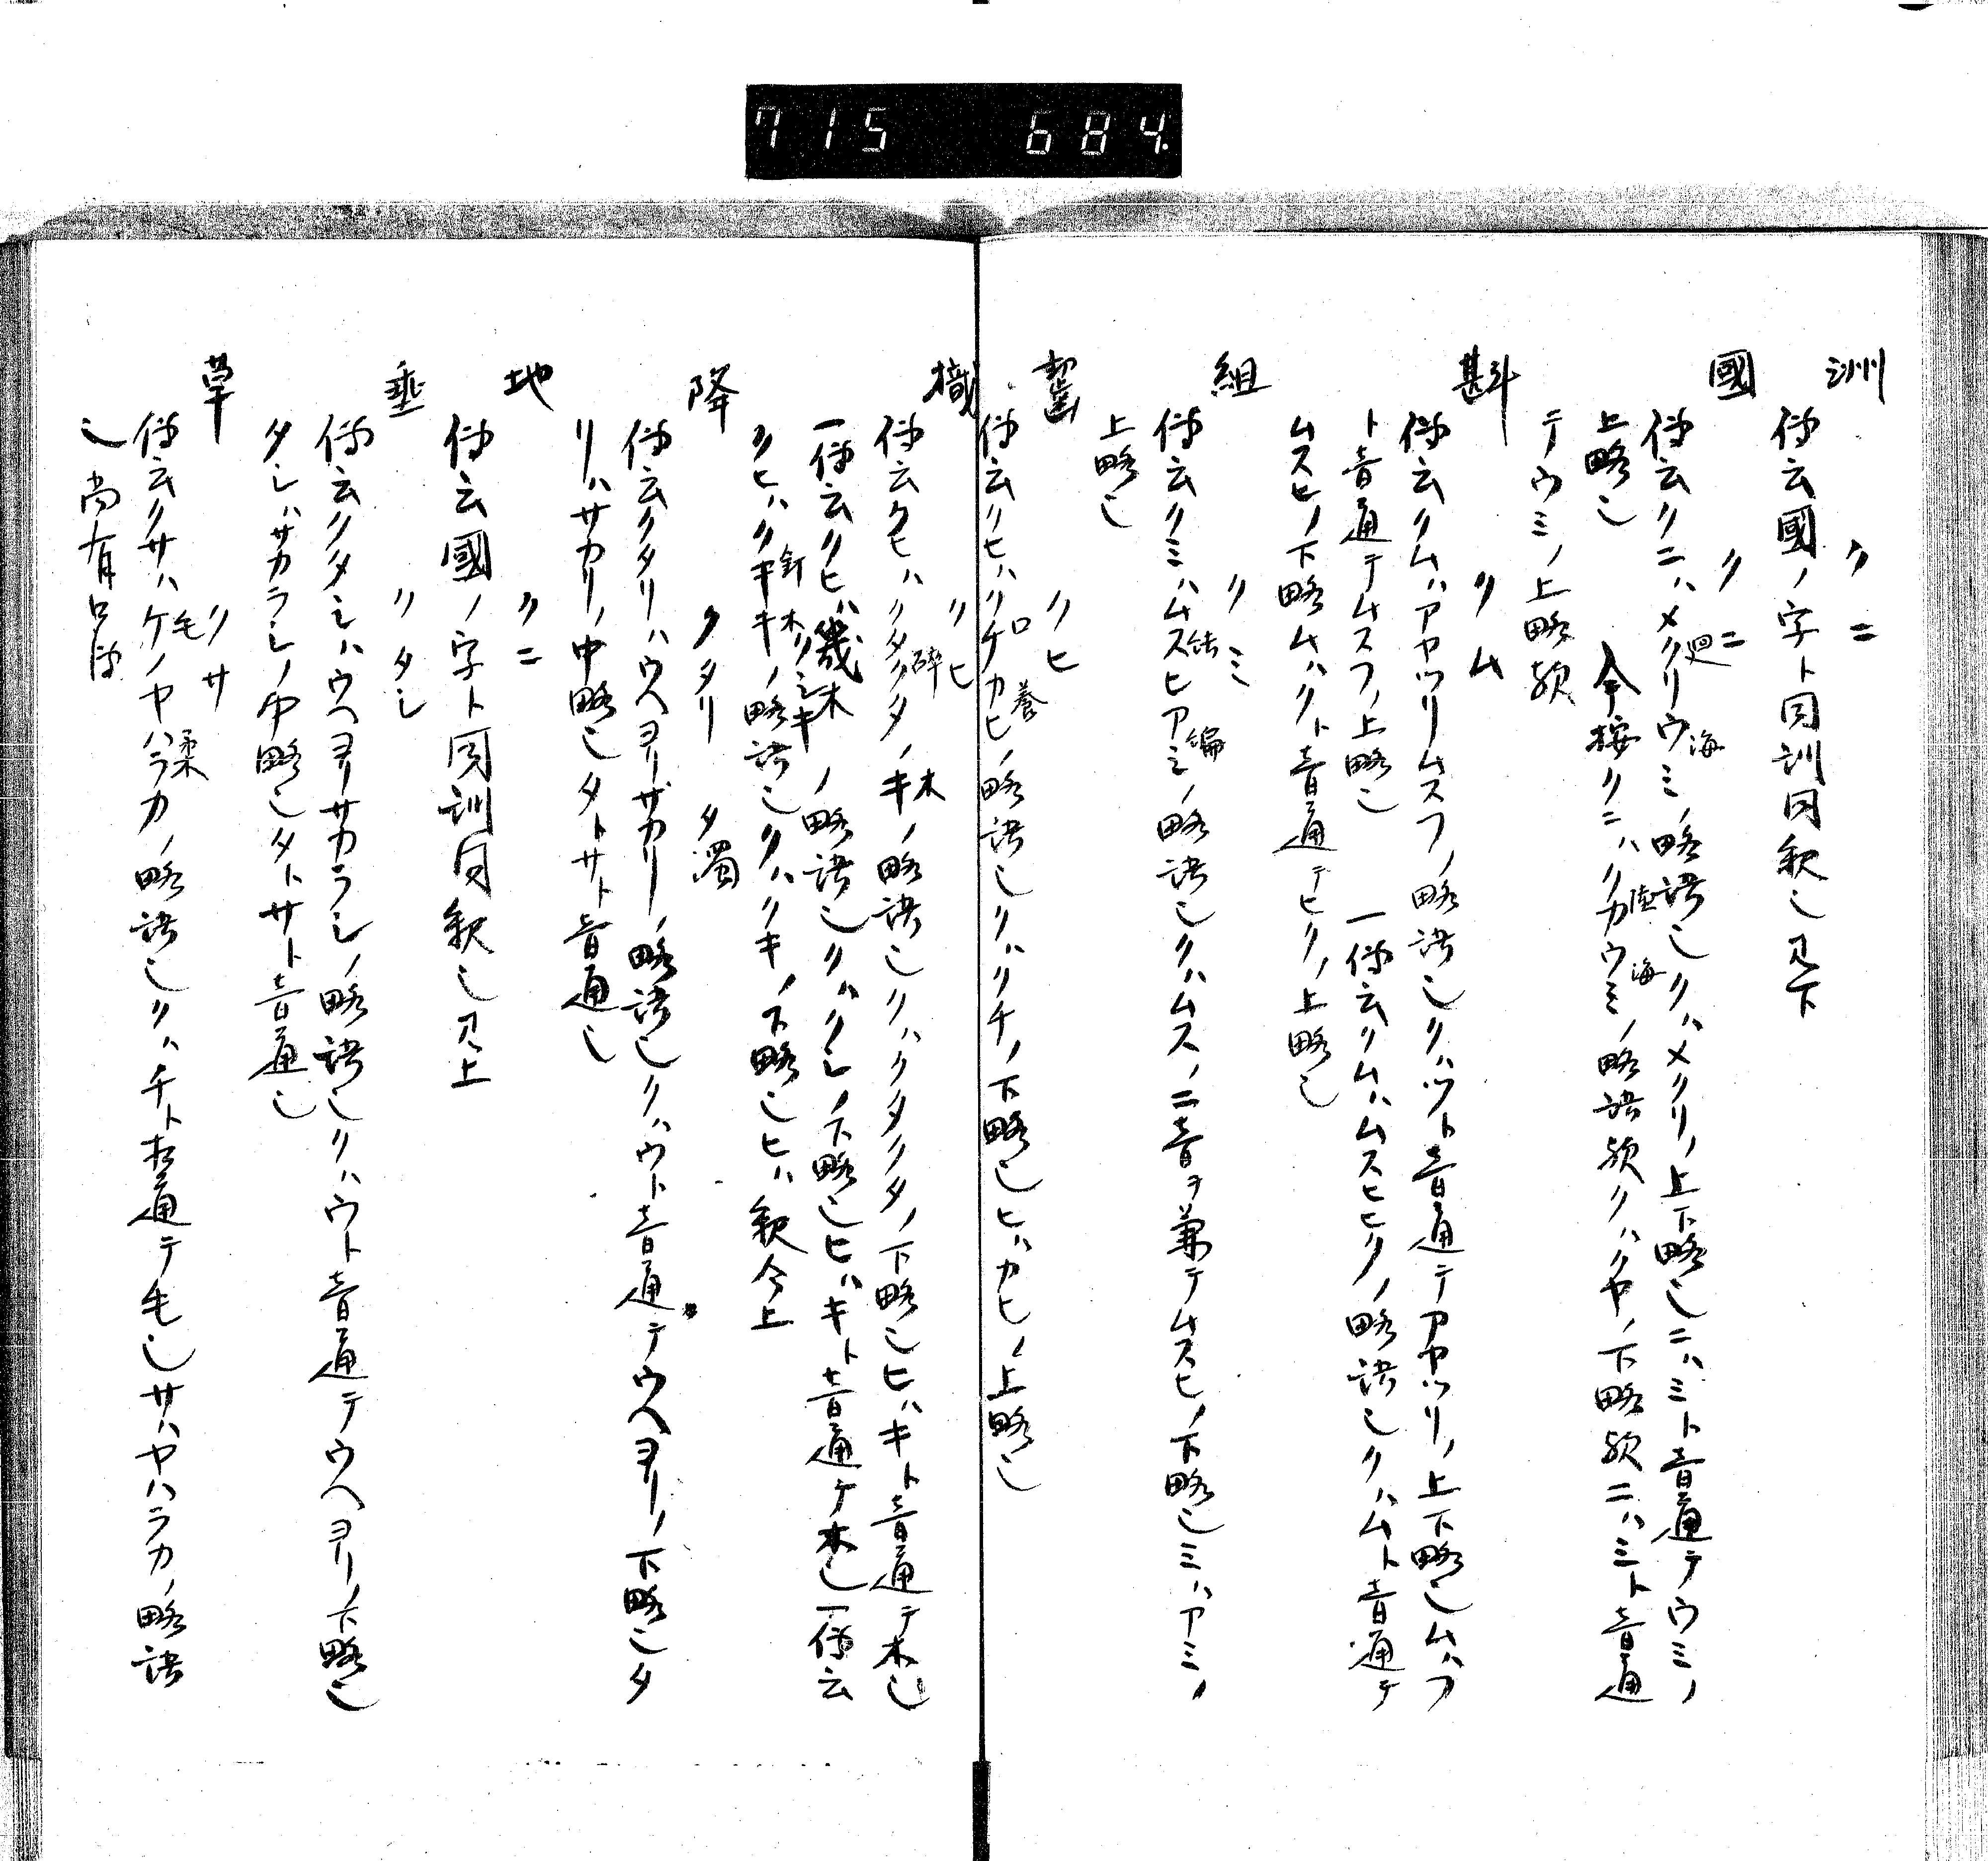 715 684.
洲 クニ
伝云國ノ字ト同訓同釈也見下
國 クニ
伝云クニハメクリウミノ略語也クハメクリノ上下略也ニハミト音通テウミノ
廻 海
上略也 今按クニハクカウミノ略語欤クハクカノ下略欤ニハミト音通
陸 海
テウミノ上略欤
斟 クム
伝云クムハアヤツリムスフノ略語也クハツト音通テアヤツリノ上下略也ムハフ
ト音通テムスフノ上略也 一伝云クムハムスヒヒクノ略語也クハムト音通テ
ムスヒノ下略ムハクト音通テヒクノ上略也
組 クミ
伝云クミハムスヒアミノ略語也クハムスノ二音ヲ兼テムスヒノ下略也ミハアミノ
結 編
上略也
齧 クヒ
伝云クヒハクチカヒノ略語也クハクチノ下略也ヒハカヒノ上略也
口 養
樴 クヒ
伝云クヒハクタクタノキノ略語也クハクタクタノ下略也ヒハキト音通テ木也
砕 木
一伝云クヒハ機木ノ略語也クハクシノ下略也ヒハキト音通ケ木也一伝云
クシキ
クヒハクキキノ略語也クハクキノ下略也ヒハ釈今上
釘 木
降 クタリ タ濁
伝云クタリハウヘヨリサカリノ略語也クハウト音通テウヘヨリノ下略也タ
リハサカリノ中略也タトサト音通也
地 クニ
伝云國ノ字ト同訓同釈也見上
垂 クタシ
伝云クタシハウヘヨリサカラシノ略語也クハウト音通テウヘヨリノ下略也
タシハサカラシノ中略也タトサト音通也
草 クサ
伝云クサハケノヤハラカノ略語也クハケト音通テ毛也サハヤハラカノ略語
毛 柔
也尚有口伝